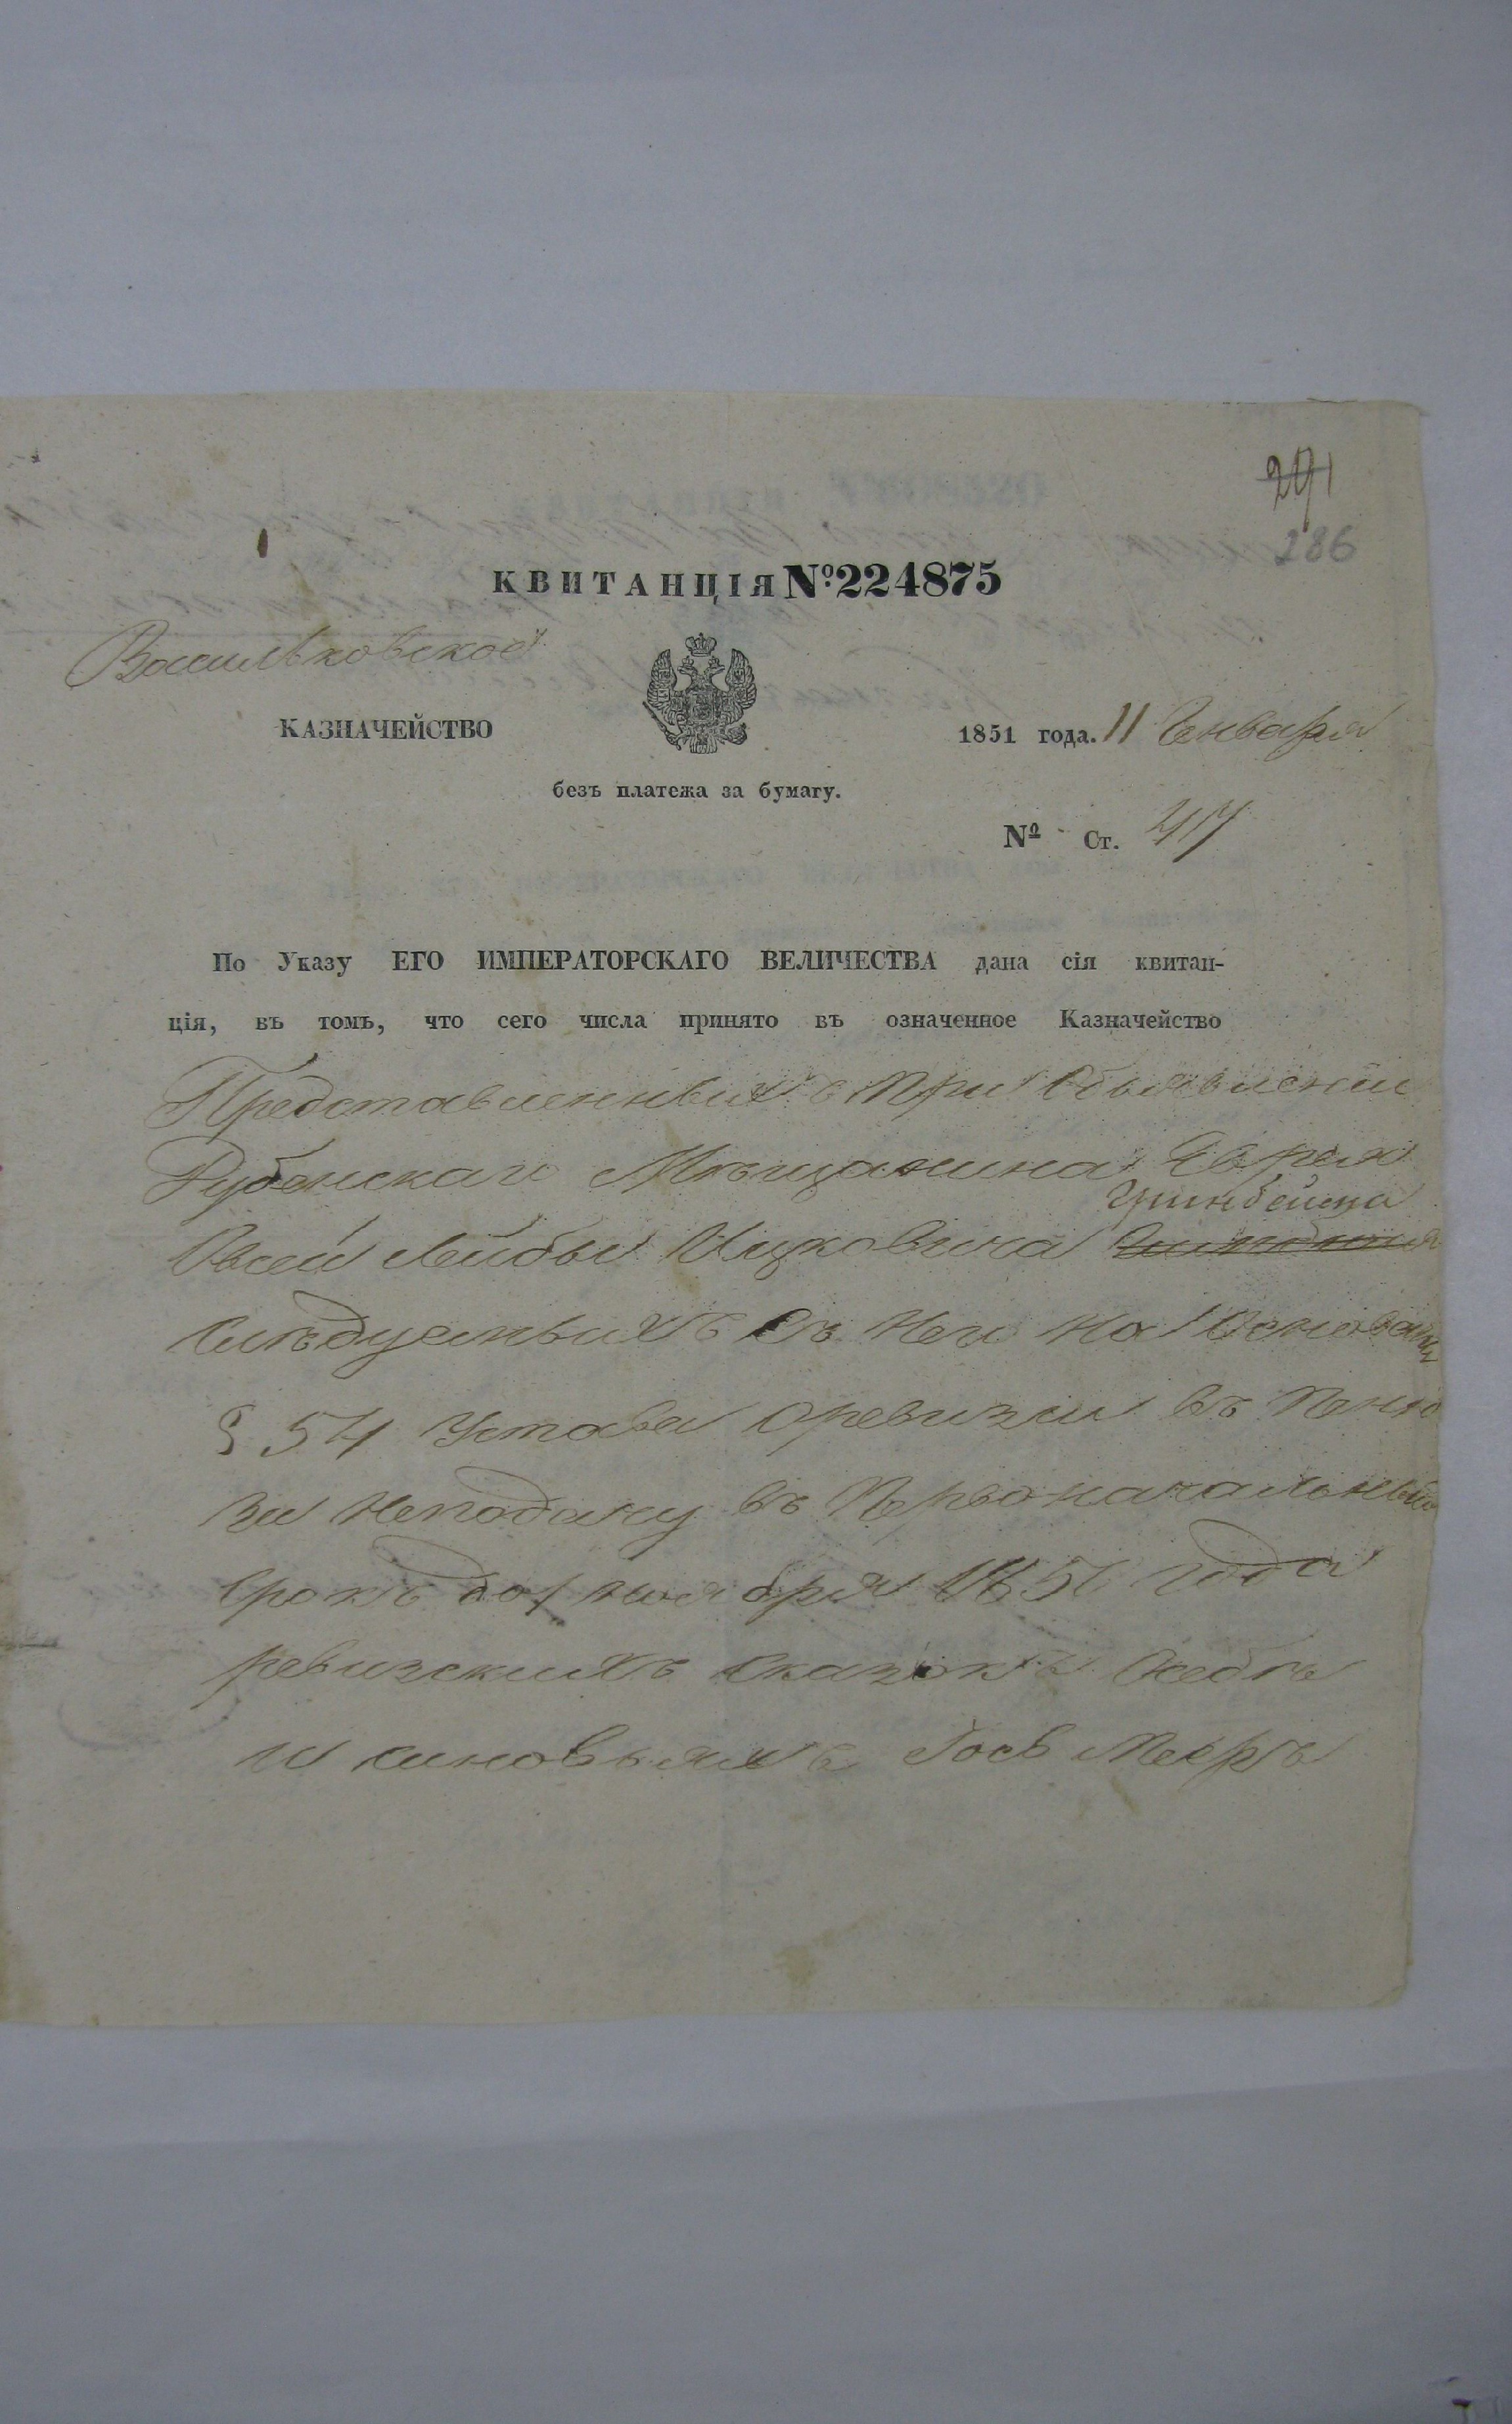 291
286
КВИТАНЦІЯ №224875
Васильковское
КАЗНАЧЕЙСТВО
1851 года. 11 Генваря
безъ платежа за бумагу.
№ Ст. 47
По Указу ЕГО ИМПЕРАТОРСКАГО ВЕЛИЧЕСТВА дана сія квитан-
ція, въ томъ, что сего числа принято въ означенное Казначейство
Представленныхъ при Объявленіи
Мѣщанина Еврея
Гринбейна
Овсей Лейбы Ицковича
Слѣдуемыхъ Съ Него на Основаніи
§ 54 Устава Оревизіи въ Пеню
За неподачу въ Первоначальный
Срокъ до 1 ноября 1850 года
ревизскихъ сказокъ Осебѣ
и синовьяхъ Мекрѣ